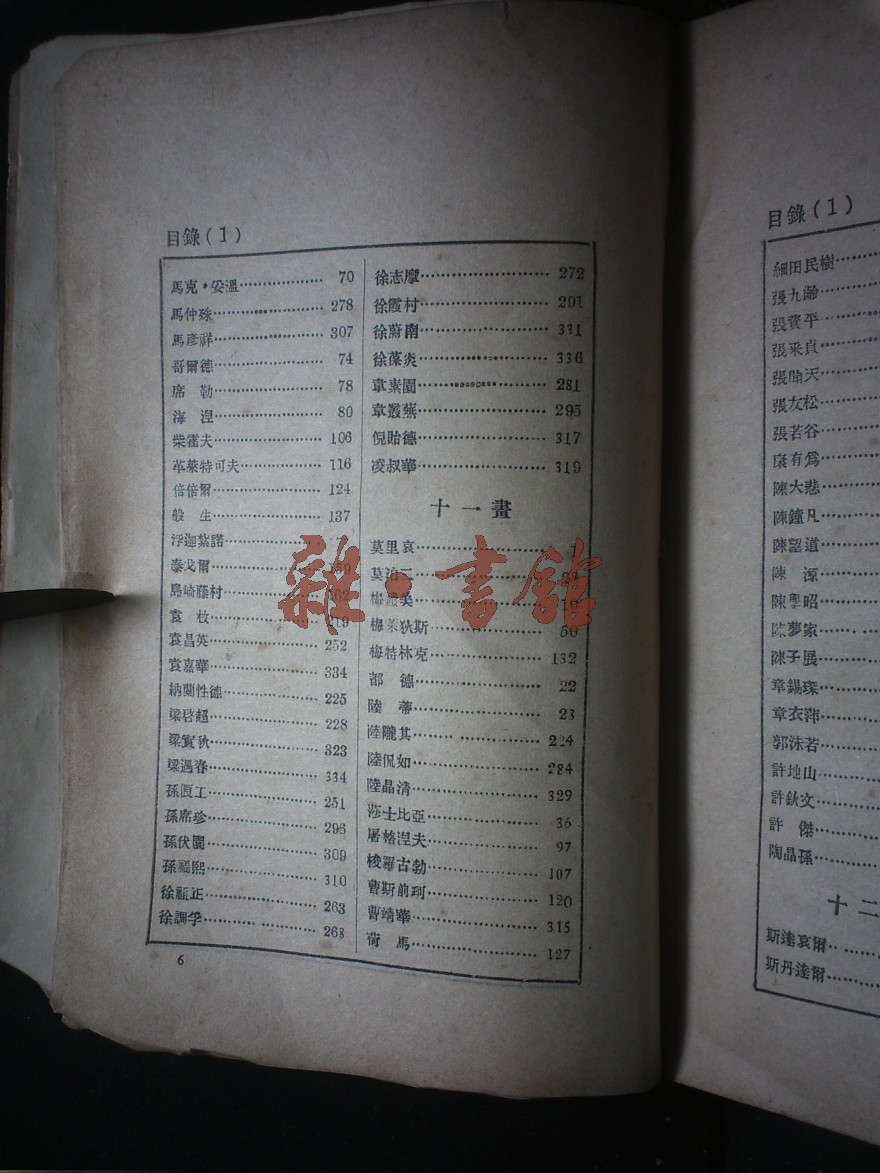 目錄(1)
馬克·妥溫 70
馬仲殊 278
馬彥祥 307
哥爾德 74
席勒 78
海涅 80
柴霍夫 106
革萊特可夫 116
倍倍爾 124
般生 137
浮迦紮諾
泰戈爾
島崎藤村 162
袁枚 219
袁昌英 252
袁嘉華 334
納蘭性德 225
梁啓超 228
梁實秋 323
梁遇春 334
孫俍工 251
孫席珍 296
孫伏園 309
孫福熙 310
徐祖正 263
徐調孚 268
徐志摩 272
徐霞村 291
徐蔚南 331
徐葆炎 336
韋素園 281
韋叢蕪 295
倪貽德 317
凌叔華 319
十一畫
莫里哀
莫泊三
梅禮美
梅萊狄斯 50
梅特林克 132
都德 22
陸蒂 23
陸隴其 224
陸侃如 284
陸晶清 329
莎士比亞 36
屠格涅夫 97
梭羅古勃 107
曹斯前珂 120
曹靖華 315
荷馬 127
6
雜·書館
目錄(1)
細田民樹
張九齡
張資平
張采真
張聞天
張友松
張若谷
康有爲
陳大悲
陳鐘凡
陳望道
陳源
陳學昭
陳夢家
陳子展
章錫琛
章衣萍
郭沫若
許地山
許欽文
許傑
陶晶孫
十二
斯達哀爾
斯丹達爾